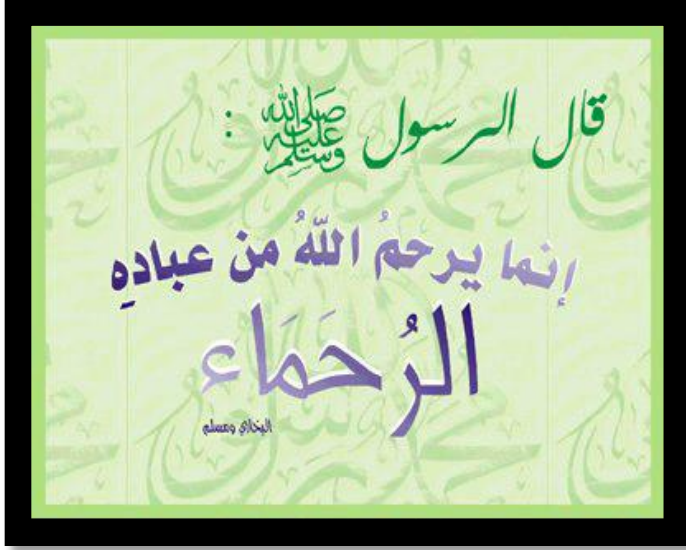 قال الرسول صلى الله عليه وسلم :
إنما يرحمُ اللهُ من عبادهِ
الرُحَمَاء
البخاري ومسلم